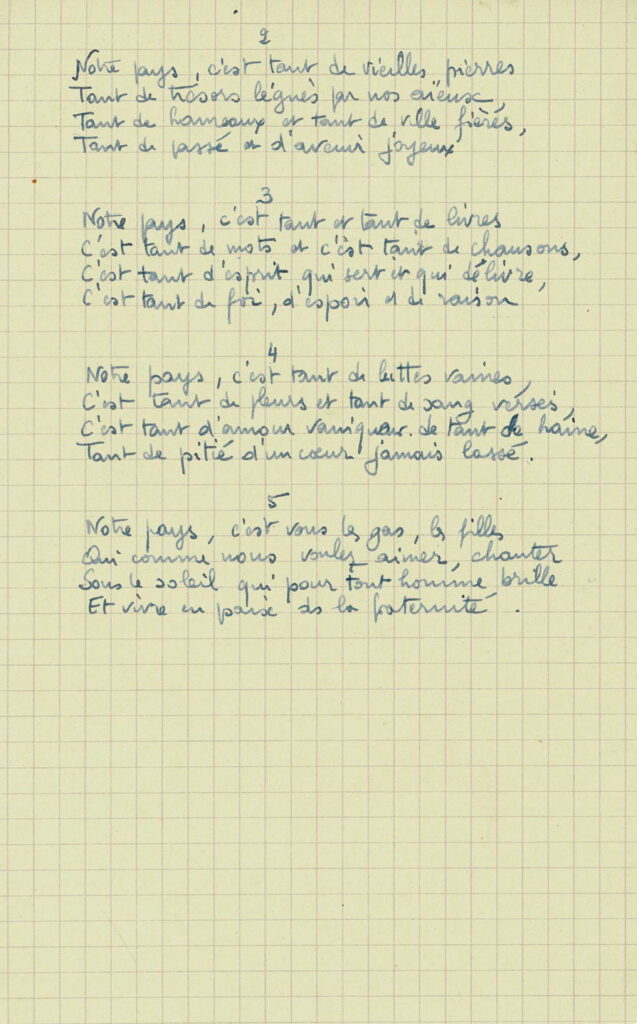 2
Notre pays, c'est tant de vieilles pierres
Tant de trésors légués par nos aïeux,
Tant de hameaux et tant de ville fières,
Tant de passé et d'avenir joyeux
3
Notre pays, c'est tant et tant de livres
C'est tant de mots et c'est tant de chansons,
C'est tant d'esprit qui sert et qui délivre,
C'est tant de foi, d'espoir et de raison
4
Notre pays, c'est tant de luttes vaines,
C'est tant de pleurs et tant de sang versés,
C'est tant d'amour vainqueur de tant de haine,
Tant de pitié d'un cœur jamais lassé.
5
Notre pays, c'est vous les gas, les filles
Qui comme nous voulez aimer, chanter
Sous le soleil qui pour tout homme brille
Et vivre en paix ds la fraternité.